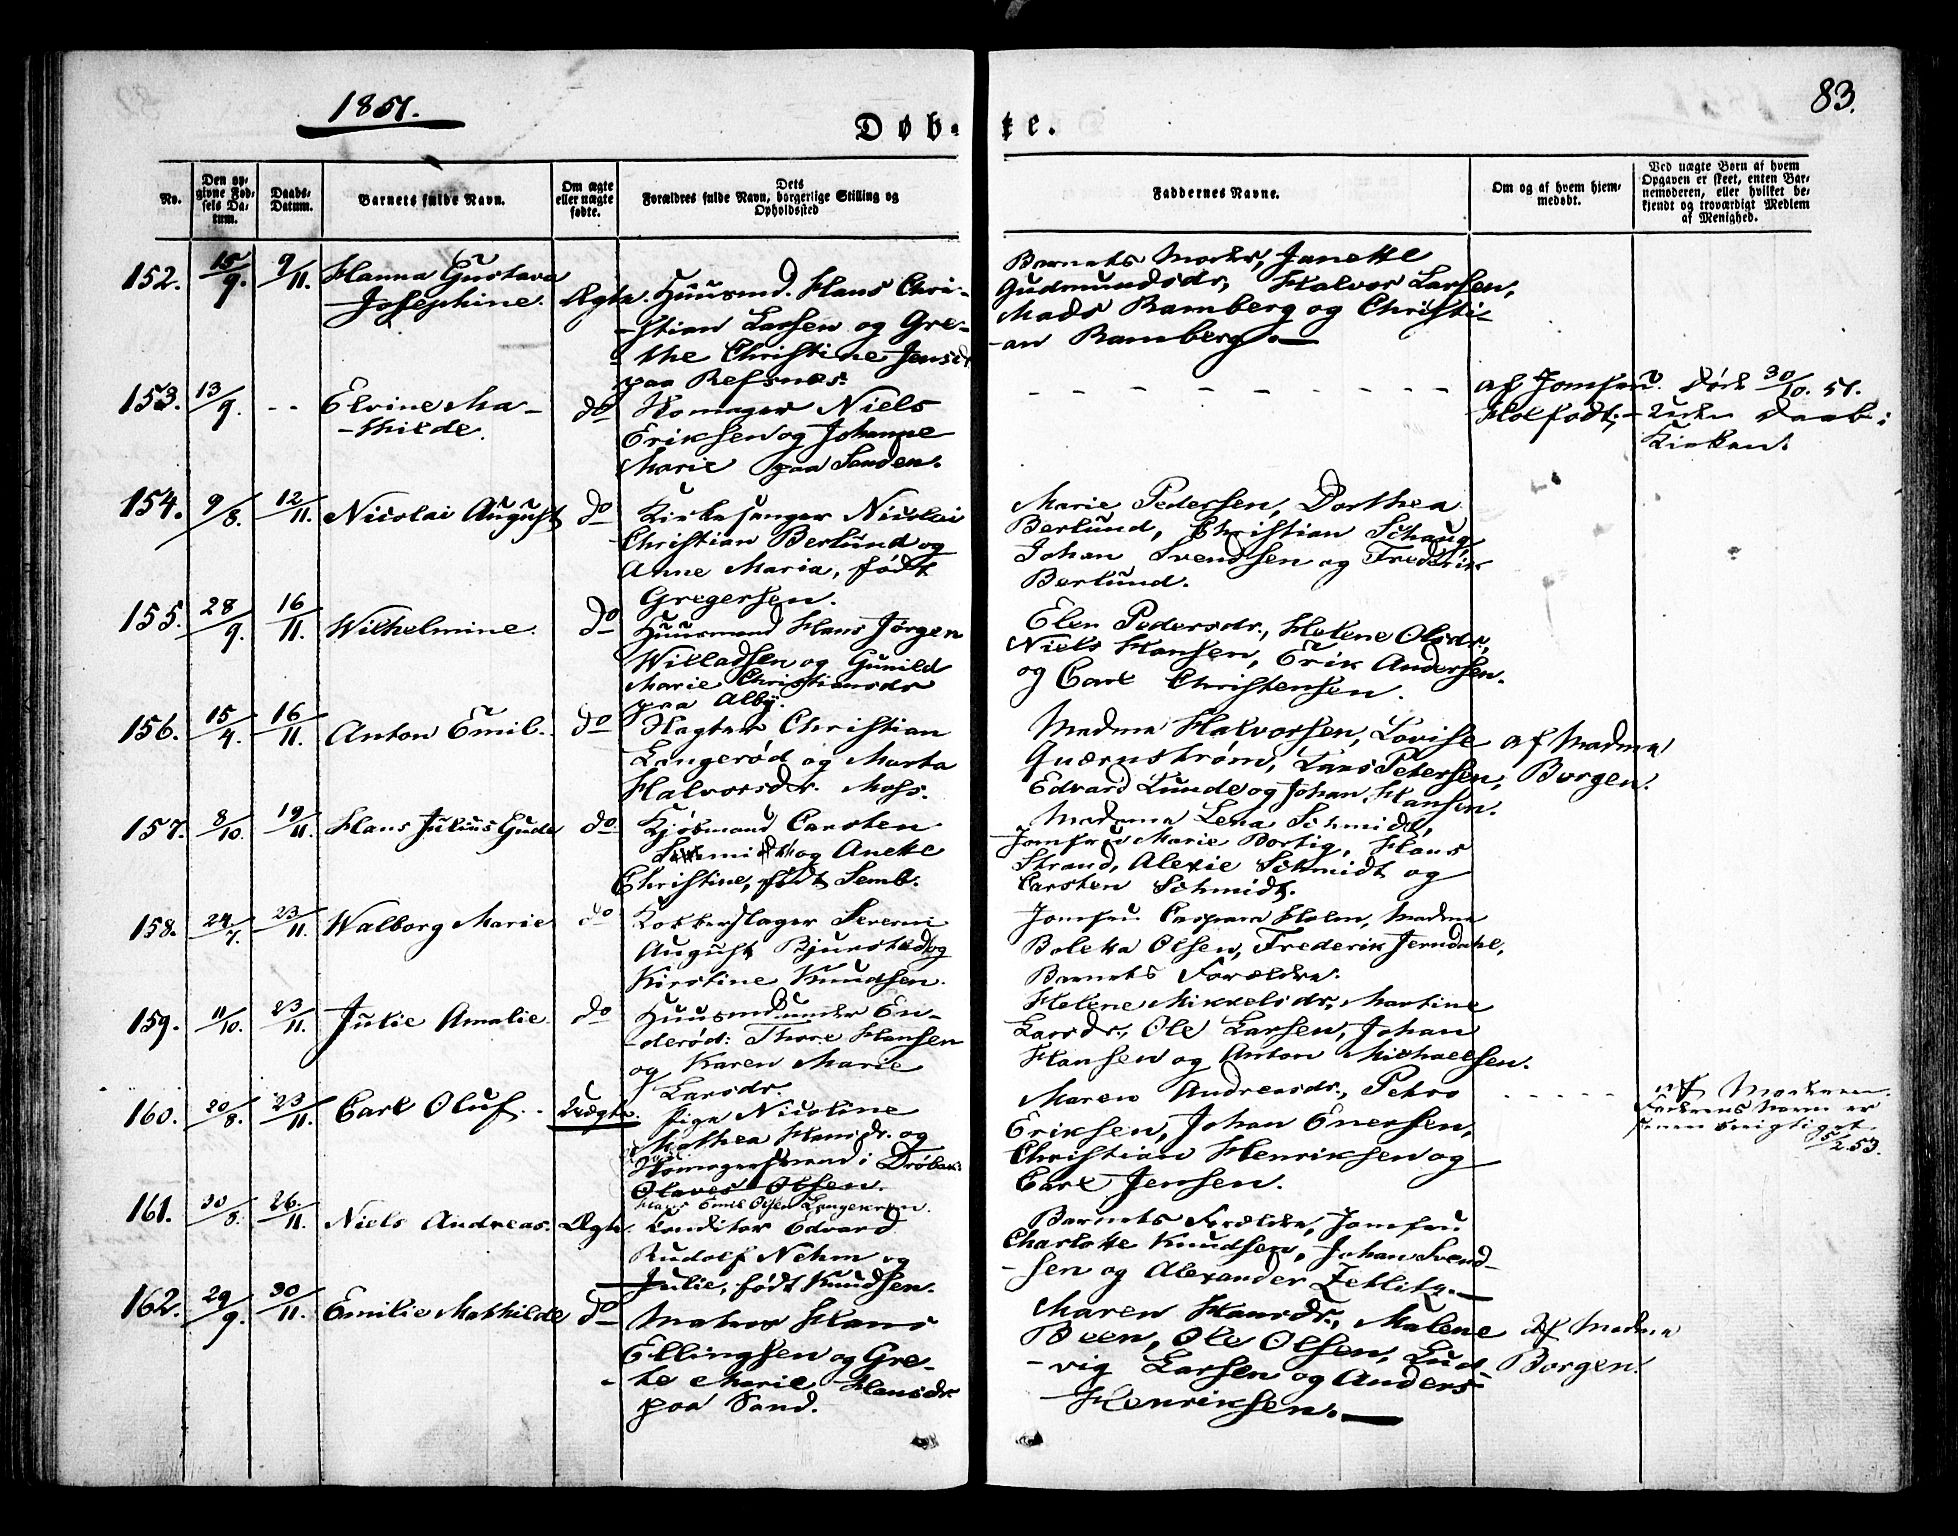 1851.
83.
Døb-
te.
No.
Den op-
givne Fød-
sels Da-
tum.
Daabs-
Datum.
Barnets fulde Navn.
Om ægte
eller uægte
fødte.
Dets
Forældres fulde Navn, borgerlige Stilling og
Opholdssted
Faddernes Navne.
Om og af hvem hjem-
medøbt.
Ved uægte Børn af hvem
Opgaven er skeet, enten Bar-
nemoderen, eller hvilket be-
kjendt og troværdigt Medlem
af Menighed.
152. 15/9. 9/11. Hanna Gustava
Josephine. Ægte. Huusmd. Hans Chri-
-stian Larsen og Gre-
-the Christine Jensdr
paa Refsnæs.
Barnets Moder, Janette
Gudmundsdr, Halvor Larsen,
Mads Ramberg og Christi-
-an Ramberg.
153. 13/9. -- Elvine Ma-
-thilde. do Skomager Niels
Eriksen og Johanne
Marie paa Sanden.
af Jomfru
Holfodt;
Død 30/10. 51.
Uden Daab i
Kirken.
154. 9/8. 12/11. Nicolai August do Kirkesanger Nicolai
Christian Berlund og
Anne Maria, født
Gregersen.
Marie Pedersen, Dorthea
Berlund, Christian Schaug,
Johan Svendsen og Frederik
Berlund.
155. 28/9. 16/11. Wilhelmine. do Huusmand Hans Jörgen
Willadsen og Gunild
Marie Christiansdr
paa Alby.
Elen Pedersdr., Helene Olsdr.,
Niels Hansen, Erik Andersen.
og Carl Christensen.
156. 15/4. 16/11. Anton Emil. do Slagter Christian
Langerød og Marta
Halvorsdr. Moss.
Madme Halvorsen, Lovise
Quærnstrøm, Lars Petersen,
Edvard Lunde og Johan Hansen.
af Madme
Borgen.
157. 8/10. 19/11. Hans Julius Gude do Kjøbmand Carsten
Schmidt og Anette
Christine, født Semb.
Madame Lena Schmidt,
Jomfru Marie Bortig, Hans
Strand, Alexie Schmidt og
Carsten Schmidt.
158. 24/7. 23/11. Walborg Marie do Kobberslager Severin
August Bjurstad og
Kirstine Knudsen.
Jomfru Caspara Holm, Madme
Boletta Olsen, Frederik Jerndahl,
Barnets Forældre.
159. 11/10. 23/11. Julie Amalie. do Huusmd under En-
-derød: Thore Hansen
og Karen Marie
Larsdr.
Helene Mikkelsdr, Martine
Larsdr., Ole Larsen, Johan
Hansen og Anton Michaelsen.
160. 20/8. 23/11. Carl Oluf. Uægte. Pige Nicoline
Mathea Hansdr. og
Skomagersvend i Drøbak:
Olaves Olsen.
Hans Emil Olsen Langekren.
Maren Andreasdr., Petro
Eriksen, Johan Enersen,
Christian Henriksen og
Carl Jensen.
af Moderen.
Faderens Navn er
senere berigtiget
5/2. 53.
161. 30/8. 26/11. Niels Andreas. Ægte. Conditor Edvard
Rudolf Nehm og
Julie, født Knudsen.
Barnets Forældre, Jomfru
Charlotte Knudsen, Johan Svend-
-sen og Alexander Zetlitz.
162. 29/9. 30/11. Emilie Mathilde do Matros Hans
Ellingsen og Gre-
-te Marie Hansdr
paa Sand.
Maren Hansdr., Malene
Been, Ole Olsen, Lud-
-vig Larsen og Anders
Henriksen.
Af Madme
Borgen.